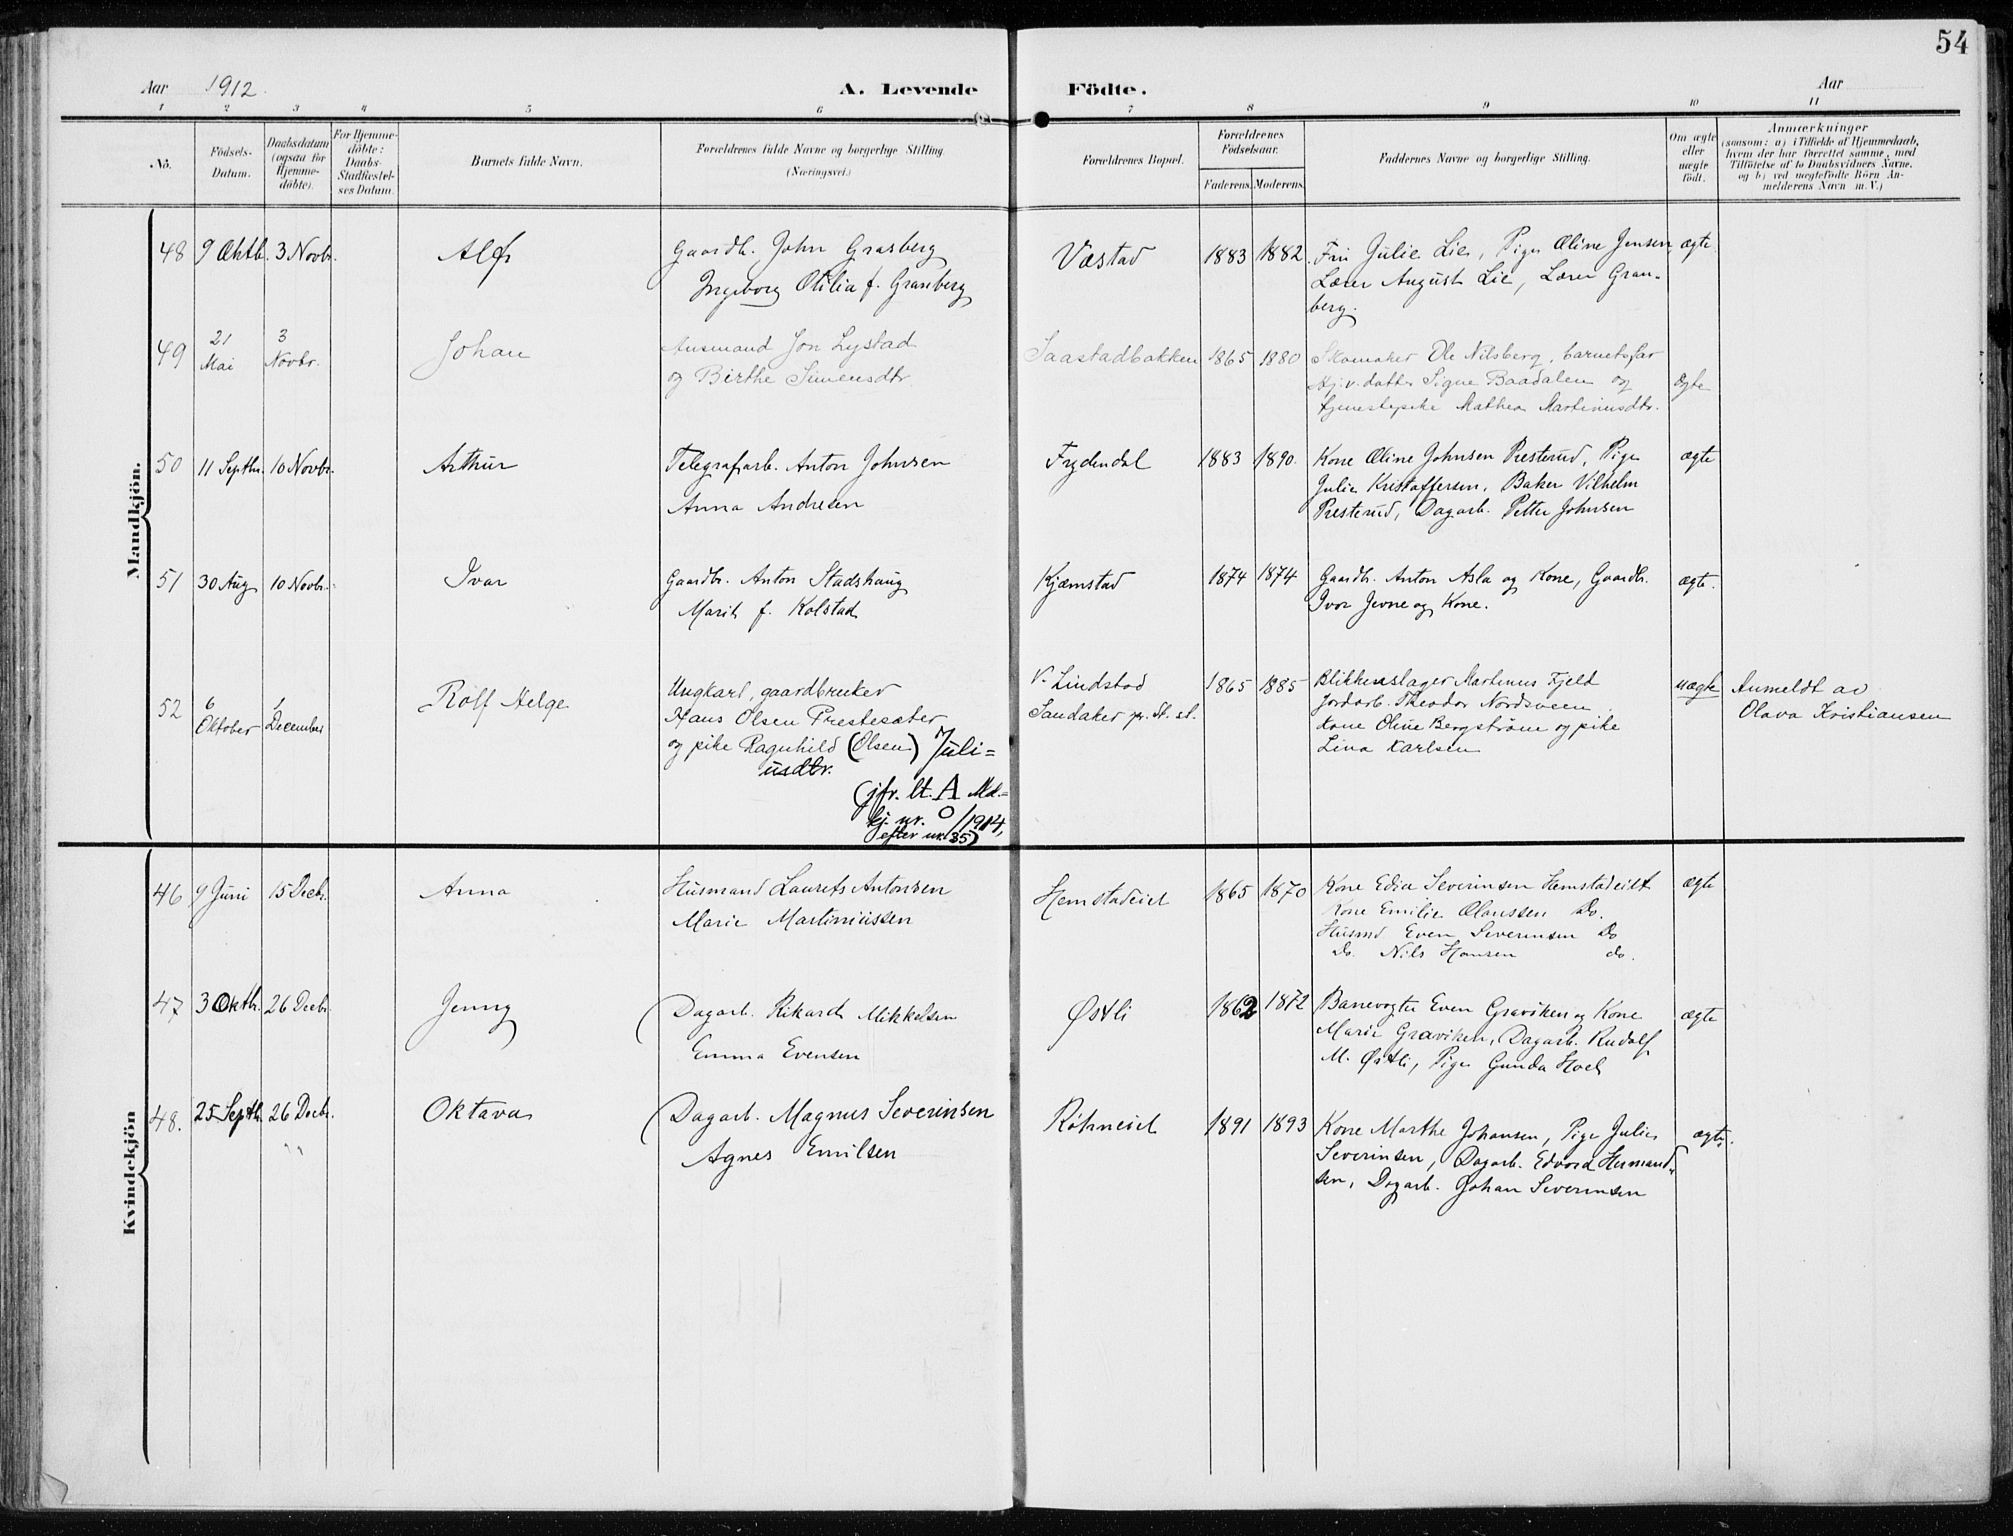 54
Aar 1912. A. Levende Födte. Aar
1 2 3 4 5 6 7 8 9 10 11
No. Födsels-Datum. Daabsdatum (ogsaa for Hjemme-döbte). For Hjemme-döbte: Daabs-Stadfæstel-ses Datum. Barnets fulde Navn. Forældrenes fulde Navne og borgerlige Stilling. (Næringsvei.) Forældrenes Bopæl. Forældrenes Födselsaar. Faderens. Moderens. Faddernes Navne og borgerlige Stilling. Om ægte eller uægte födt. Anmærkninger (saasom: a) i Tilfælde af Hjemmedaab, hvem der har forrettet samme, med Tilföielse af to Daabsvidners Navne, og b) ved uægtefödte Börn An-melderens Navn m. V.)
Mandkjön.
48 9 Oktb. 3 Novbr. Alf Gaardb. John Grasberg Væstad 1883 1882. Fru Julie Lie, Pige Oline Jensen, ægte
Ingeborg Otilia f. Granberg Lærer August Lie, Lærer Gran-
berg.
49 21 Mai 3 Novbr. Johan Husmand Jon Lystad Saastadbakken 1865 1880 Skomaker Ole Nilsberg, barnets far
og Birthe Simensdtr. Hj.v. datter Signe Baadalen og ægte
tjenestepike Mathea Martinusdtr.
50 11 Septbr. 10 Novbr. Arthur Telegrafarb. Anton Johnsen Frydendal 1883 1890. Kone Oline Johnsen Presterud, Pige ægte
Anna Andresen Julie Kristoffersen, Baker Vilhelm
Presterud, Dagarb. Petter Johnsen
51 30 Aug 10 Novbr. Ivar Gaardbr. Anton Stadshaug Kjæmstad 1874 1874 Gaardb. Anton Asla og Kone, Gaardbr. ægte.
Marit f. Kolstad Ivar Jevne og Kone.
52 6 Oktober 1 December Rolf Helge Ungkarl, gaardbruker V. Lindstad 1865 1885 Blikkenslager Martinus Fjeld uægte Anmeldt av
Hans Olsen Prestesæter Sandaker pr. St. st. Jordarb. Theodor Nordsveen Olava Kristiansen
og pike Ragnhild (Olsen) Juli= Kone Oline Bergstrøm og pike
usdtr. Lina Karlsen
(jfr. lt. A Md.=
kj. nr. 0/1914,
efter nr. 35)
Kvindekjön
46 9 Juni 15 Decbr. Anna Husmand Laurits Antonsen Hemstadeiet 1865 1870 Kone Edia Severinsen Hemstadeilt ægte
Marie Martiniussen Kone Emilie Olaussen Do.
Husmd Even Severinsen Do
Do. Nils Hansen do.
47 3 Oktbr. 26 Decbr. Jenny Dagarb. Rikard Mikkelsen Østli 1862 1872 Banevogter Even Graviken og Kone ægte
Emma Evensen Marie Graviken, Dagarb. Rudolf
M. Østli, Pige Gunda Hoel
48. 25 Septb. 26 Decbr. Oktava Dagarb. Magnus Severinsen Røhneiet 1891 1893 Kone Marthe Johansen, Pige Julie ægte.
Agnes Emilsen Severinsen, Dagarb. Edvard Hermand-
sen, Dagarb. Johan Severinsen